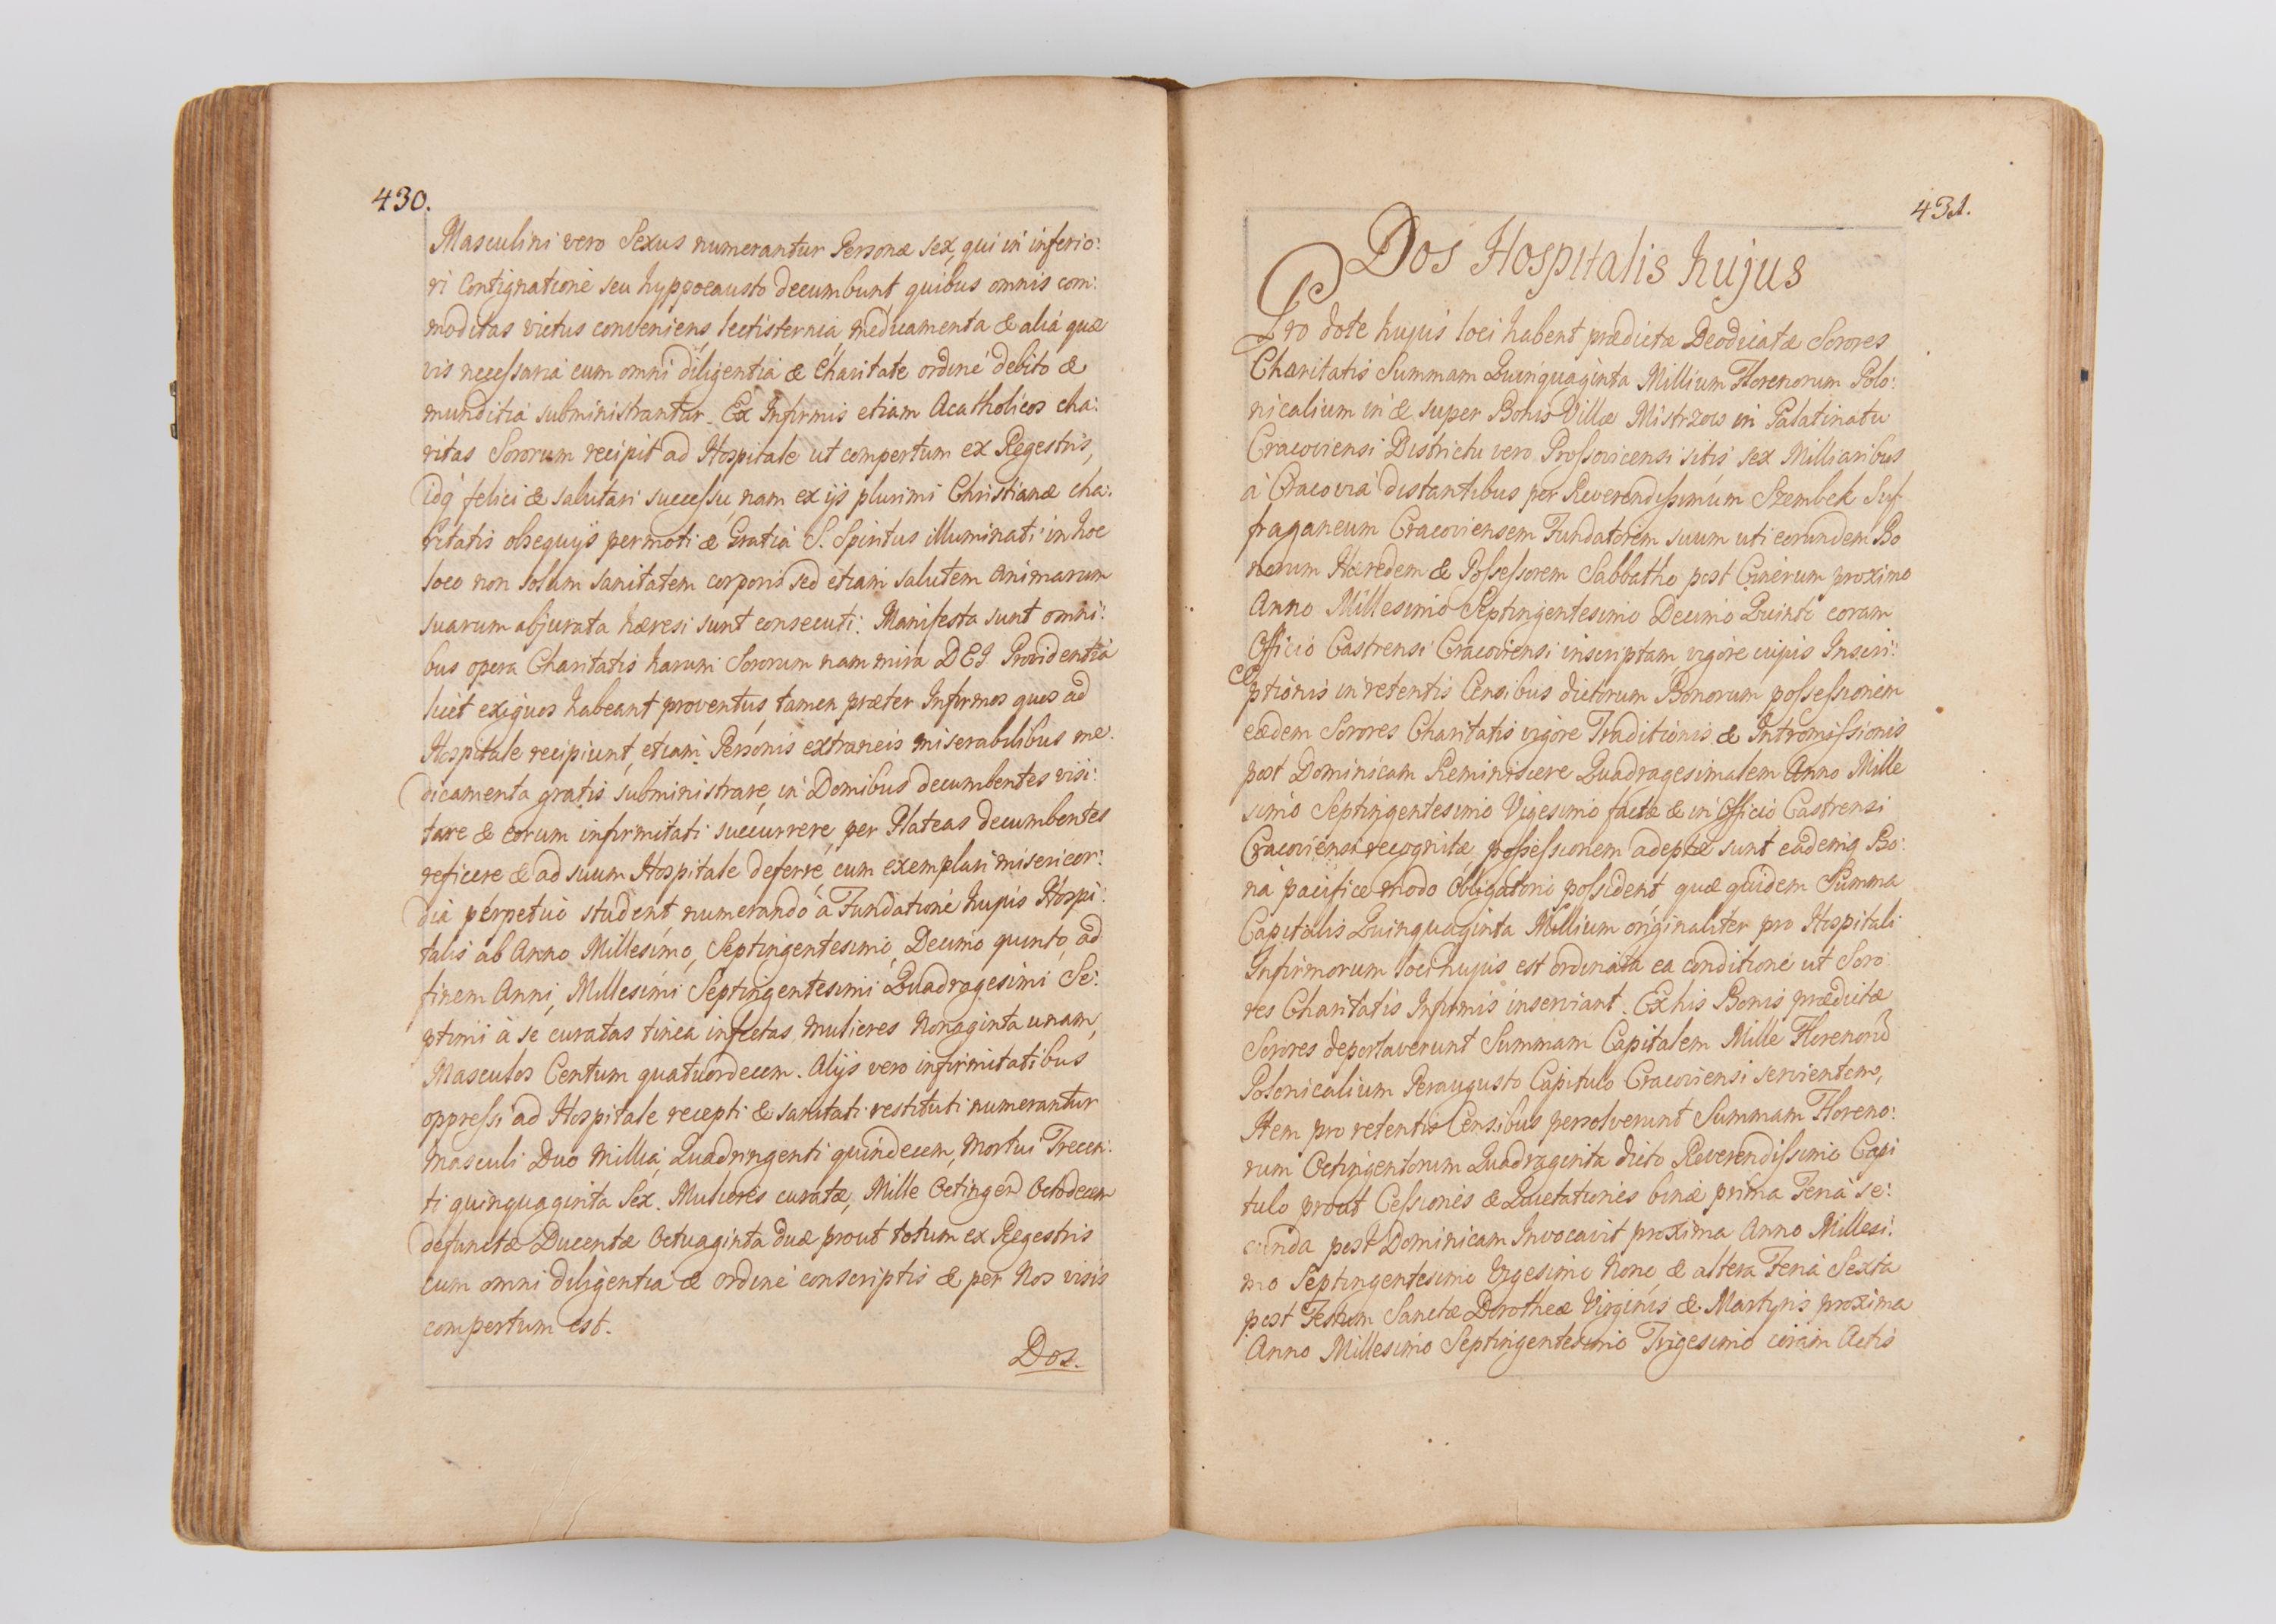 430.
Masculini vero Sexus numerantur Personæ sex, qui in inferio:
ri Contignatione seu hyppocausto decumbunt, quibus omnis com:
moditas victus conveniens, lectisternia, medicamenta & alia quæ
vis necessaria cum omni diligentia & Charitate ordine debito &
munditia subministrantur. Ex Infirmis etiam Acatholicos cha:
ritas Sororum recipit ad Hospitale ut compertum ex Regestris,
idq felici & salutari successu, nam ex ijs plurimi Christianæ cha:
ritatis obsequijs permoti & Gratia S. Spiritus illuminati in hoc
loco non solum sanitatem corporis sed etiam salutem Animarum
suarum abjurata hæresi sunt consecuti. Manifesta sunt omni:
bus opera Charitatis harum Sororum nam mira DEI Providentia
licet exiguos habeant proventus, tamen præter Infirmos quos ad
Hospitale recipiunt, etiam Personis extraneis miserabilibus me:
dicamenta gratis subministrare, in Domibus decumbentes visi:
tare & eorum infirmitati succurrere, per Plateas decumbentes
reficere & ad suum Hospitale deferre, cum exemplari misericor:
dia perpetuo student numerando a Fundatione hujus Hospi:
talis ab Anno Millesimo, Septingentesimo, Decimo quinto, ad
finem Anni, Millesimi Septingentesimi Quadragesimi Se:
ptimi à se curatas tinea infectas Mulieres Nonaginta unam,
Masculos Centum quatuordecem. Alijs vero infirmitatibus
oppressi ad Hospitale recepti & sanitati restituti numerantur
Masculi Duo Millia Quadringenti quindecem, Mortui Trecen:
ti quinquaginta Sex. Mulieres curatæ, Mille Octingen Octodecem
defunctæ Ducentæ Octuaginta duæ prout totum ex Regestris
cum omni diligentia & ordine conscriptis & per Nos visis
compertum est.
Dos.
431.
Dos Hospitalis hujus
Pro dote hujus loci habent prædictæ Deodicatæ Sorores
Charitatis Summam Quinquaginta Millium Florenorum Polo:
nicalium in & super Bonis Villæ Mistrzow in Palatinatu
Cracoviensi Districtu vero Prossovicensi sitis sex Milliaribus
à Cracovia distantibus per Reverendissimum Szembek Suf
fraganeum Cracoviensem Fundatorem suum uti eorundem Bo
norum Hæredem & Possessorem Sabbatho post Cinerum proximo
Anno Millesimo Septingentesimo Decimo Quinti coram
Officio Castrensi Cracoviensi inscriptam, vigore cujus Inscri:
ptionis in retentis Censibus dictorum Bonorum possessionem
eædem Sorores Charitatis vigore Traditionis & Intromissionis
post Dominicam Reminiscere Quadragesimalem Anno Mille
simo Septingentesimo Vigesimo factæ & in Officio Castrensi
Cracoviensi recognitæ, possessionem adeptæ sunt eademq Bo:
na pacifice modo Obligatorio possident, quæ quidem Summa
Capitalis Quinquaginta Millium originaliter pro Hospitali
Infirmorum loci hujus est ordinata ea conditione ut Soro
res Charitatis Infirmis inserviant. Ex his Bonis prædictæ
Sorores deportaverunt Summam Capitalem Mille Florenorũ
Polonicalium Peraugusto Capitulo Cracoviensi servientem,
Item pro retentis Censibus persolverunt Summam Floreno:
rum Octingentorum Quadraginta dicto Reverendissimo Capi
tulo prout Cessiones & Quietationes binæ prima Feria se:
cunda post Dominicam Invocavit proxima Anno Millesi:
mo Septingentesimo Vigesimo Nono & altera Feria Sexta
post Festum Sanctæ Dorotheæ Virginis & Martyris proxima
Anno Millesimo Septingentesimo Trigesimo coram Actis